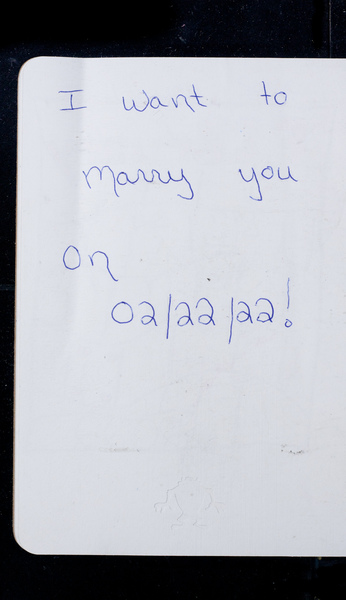 I want to
marry you
on
02/22/22!